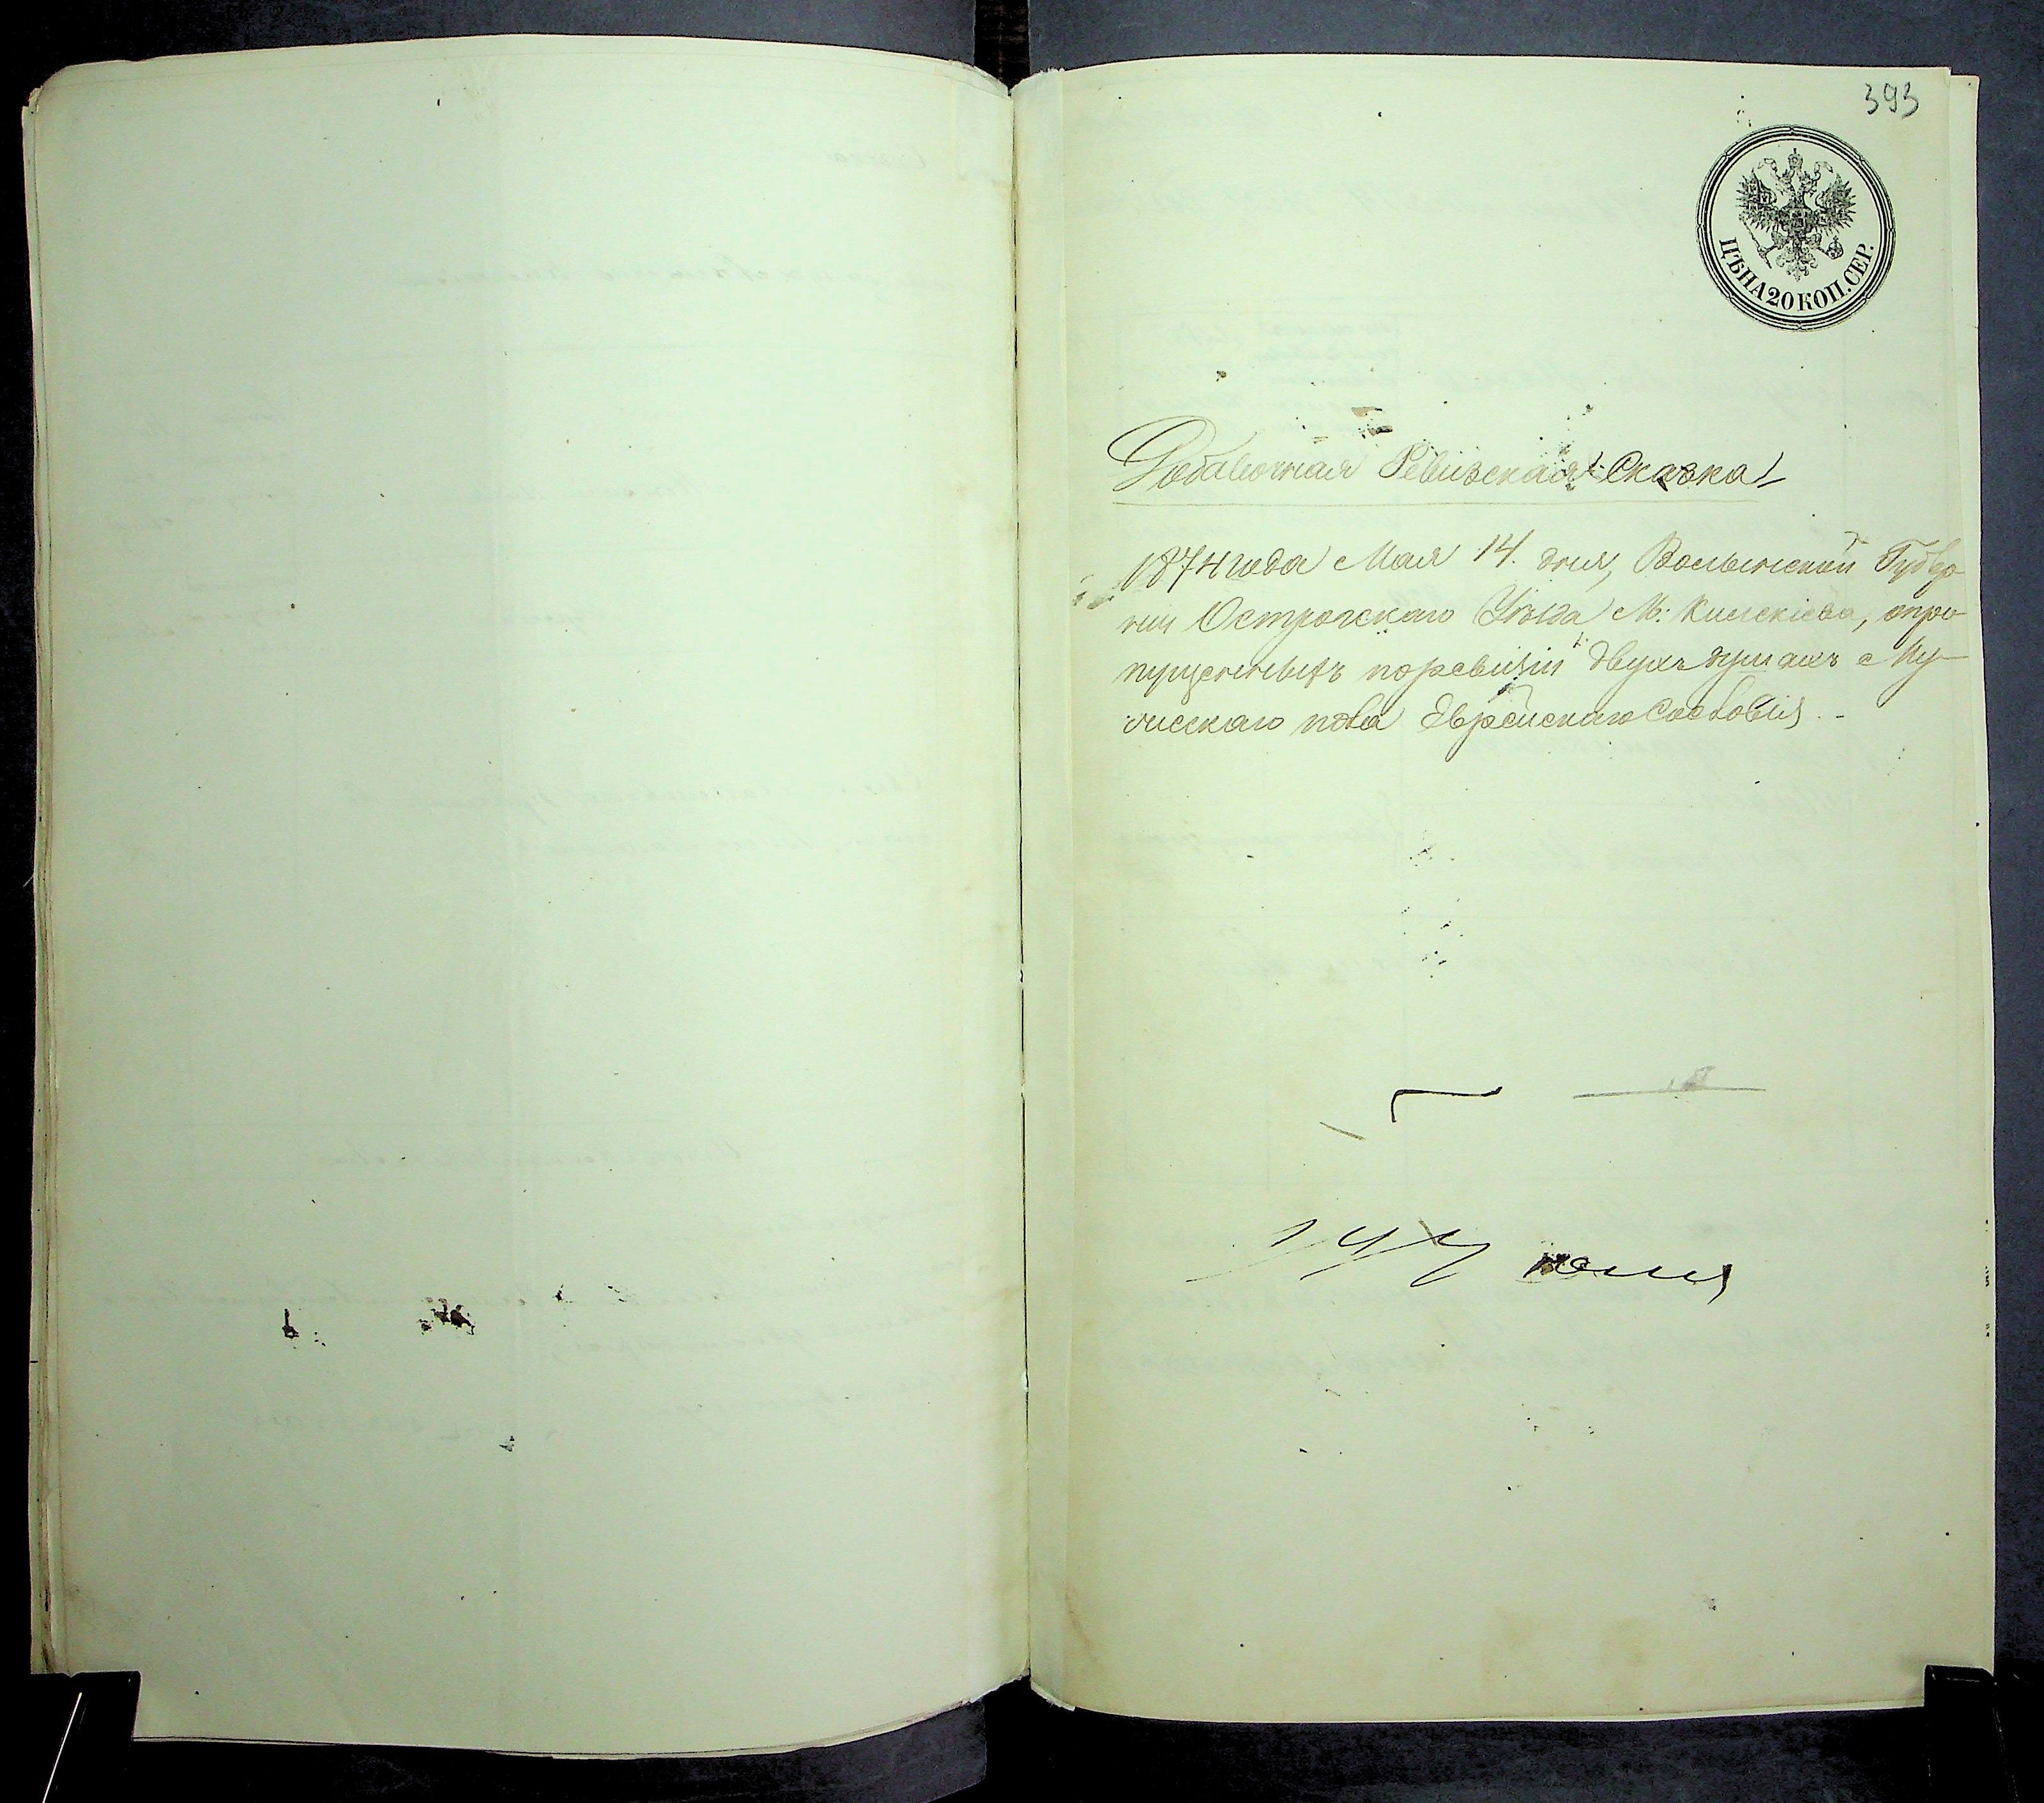 393
ЦѢНА 20 КОП. СЕР.
Добавочная Ревизская Сказка
1874 года Мая 14. дня, Волынской Губер
нии Острогскаго Уѣзда М: Килекіева, опро
пущенныхъ поревизіи двухъ душахъ Му-
жескаго пола Еврейскаго Сословія.